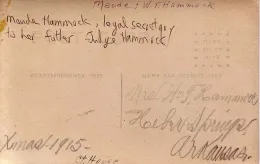 Maude & W.T. Hammock
Maude Hammock, legal secretary
to her father Judge Hammock!
CORRESPONDENCE HERE
NAME AND ADDRESS HERE
Heber Springs
Arkansas.
Xmas 1915-